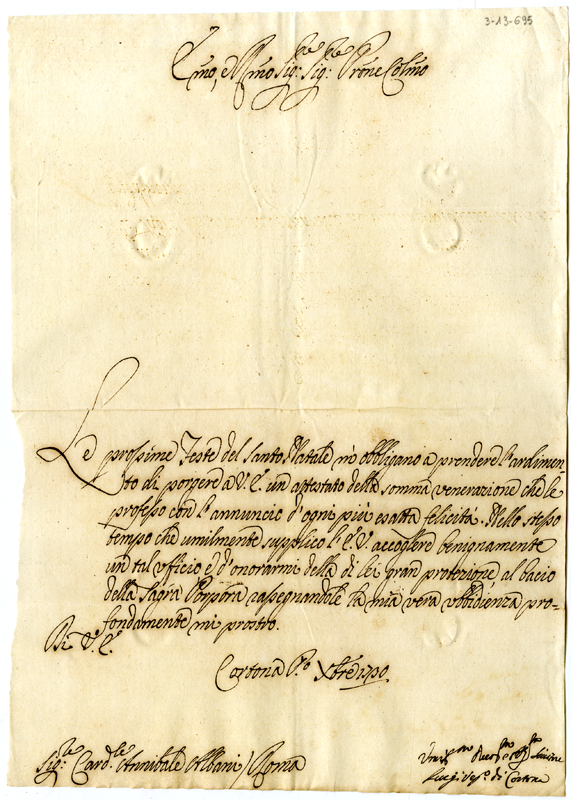 3-13-695
Em̃o, e Rm̃o Sig.re Sig.re Prone Colmo
Le prossime Feste del Santo Natale m'obbligano a prendere l'ardimen-
to di porgere a V. E. un attestato della somma venerazione che le
professo con l'annuncio d'ogni più esatta felicità. Nello stesso
tempo che umilmente supplico l'E. V. accogliere benignamente
un tal ufficio e d'onorarmi della di lei gran protezione al bacio
della Sagra Porpora rassegnandole la mia vera ubbidienza pro-
fondamente mi prostro.
Di V. E.
Cortona P.mo Xbre 1720
Sig.re Card.le Annibale Albani / Roma
Umil.mo
Luigi Ves.o di Cortona